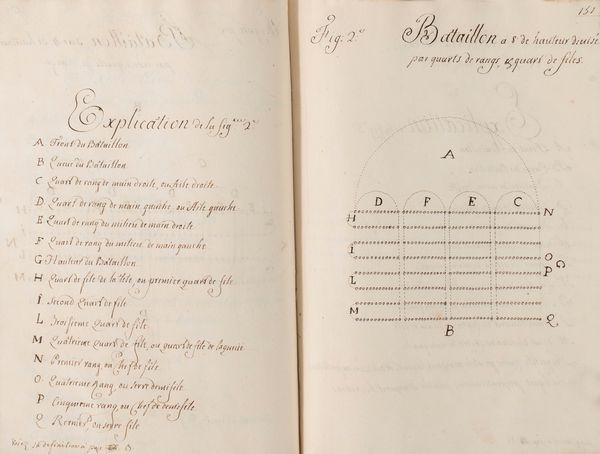 Explication de la fig.re 2.e
A Front du Bataillon
B Queue du Bataillon
C Quart de rang de main droite, ou Aile droite
D Quart de rang de main gauche, ou Aile gauche
E Quart de rang du milieu de main droite
F Quart de rang du milieu de main gauche
G Hauteur du Bataillon
H Quart de file de la tête, ou premier quart de file
I Second Quart de file
L Troisieme Quart de file
M Quatrieme Quart de file, ou quart de file de la queue
N Premier rang, ou Chef de file
O Quatrieme Rang, ou serre demifile
P Cinquieme rang, ou Chef de demifile
Q Rang, ou serre file
definition a
151
Fig: 2.e
Bataillon a 8 de hauteur divisé
par quarts de rangs, & quart de files.
A
D F E C
H N
I O
G
P
L
M Q
B